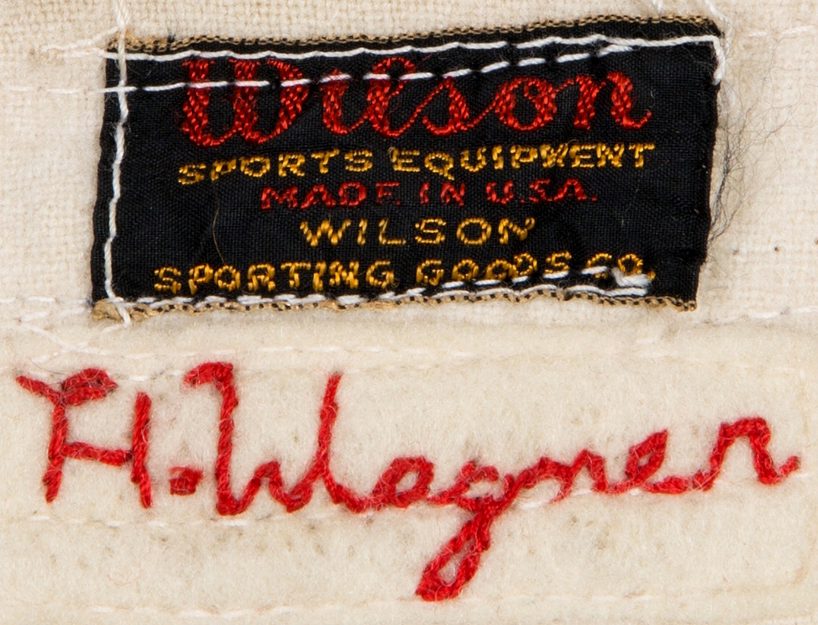 Wilson
SPORTS EQUIPMENT
MADE IN U.S.A.
WILSON
SPORTING GOODS CO.
H. Wagner